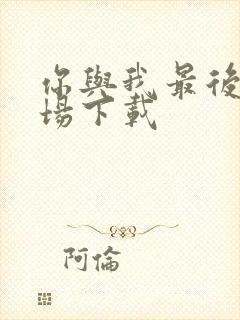 你與我最後
場下載
阿倫